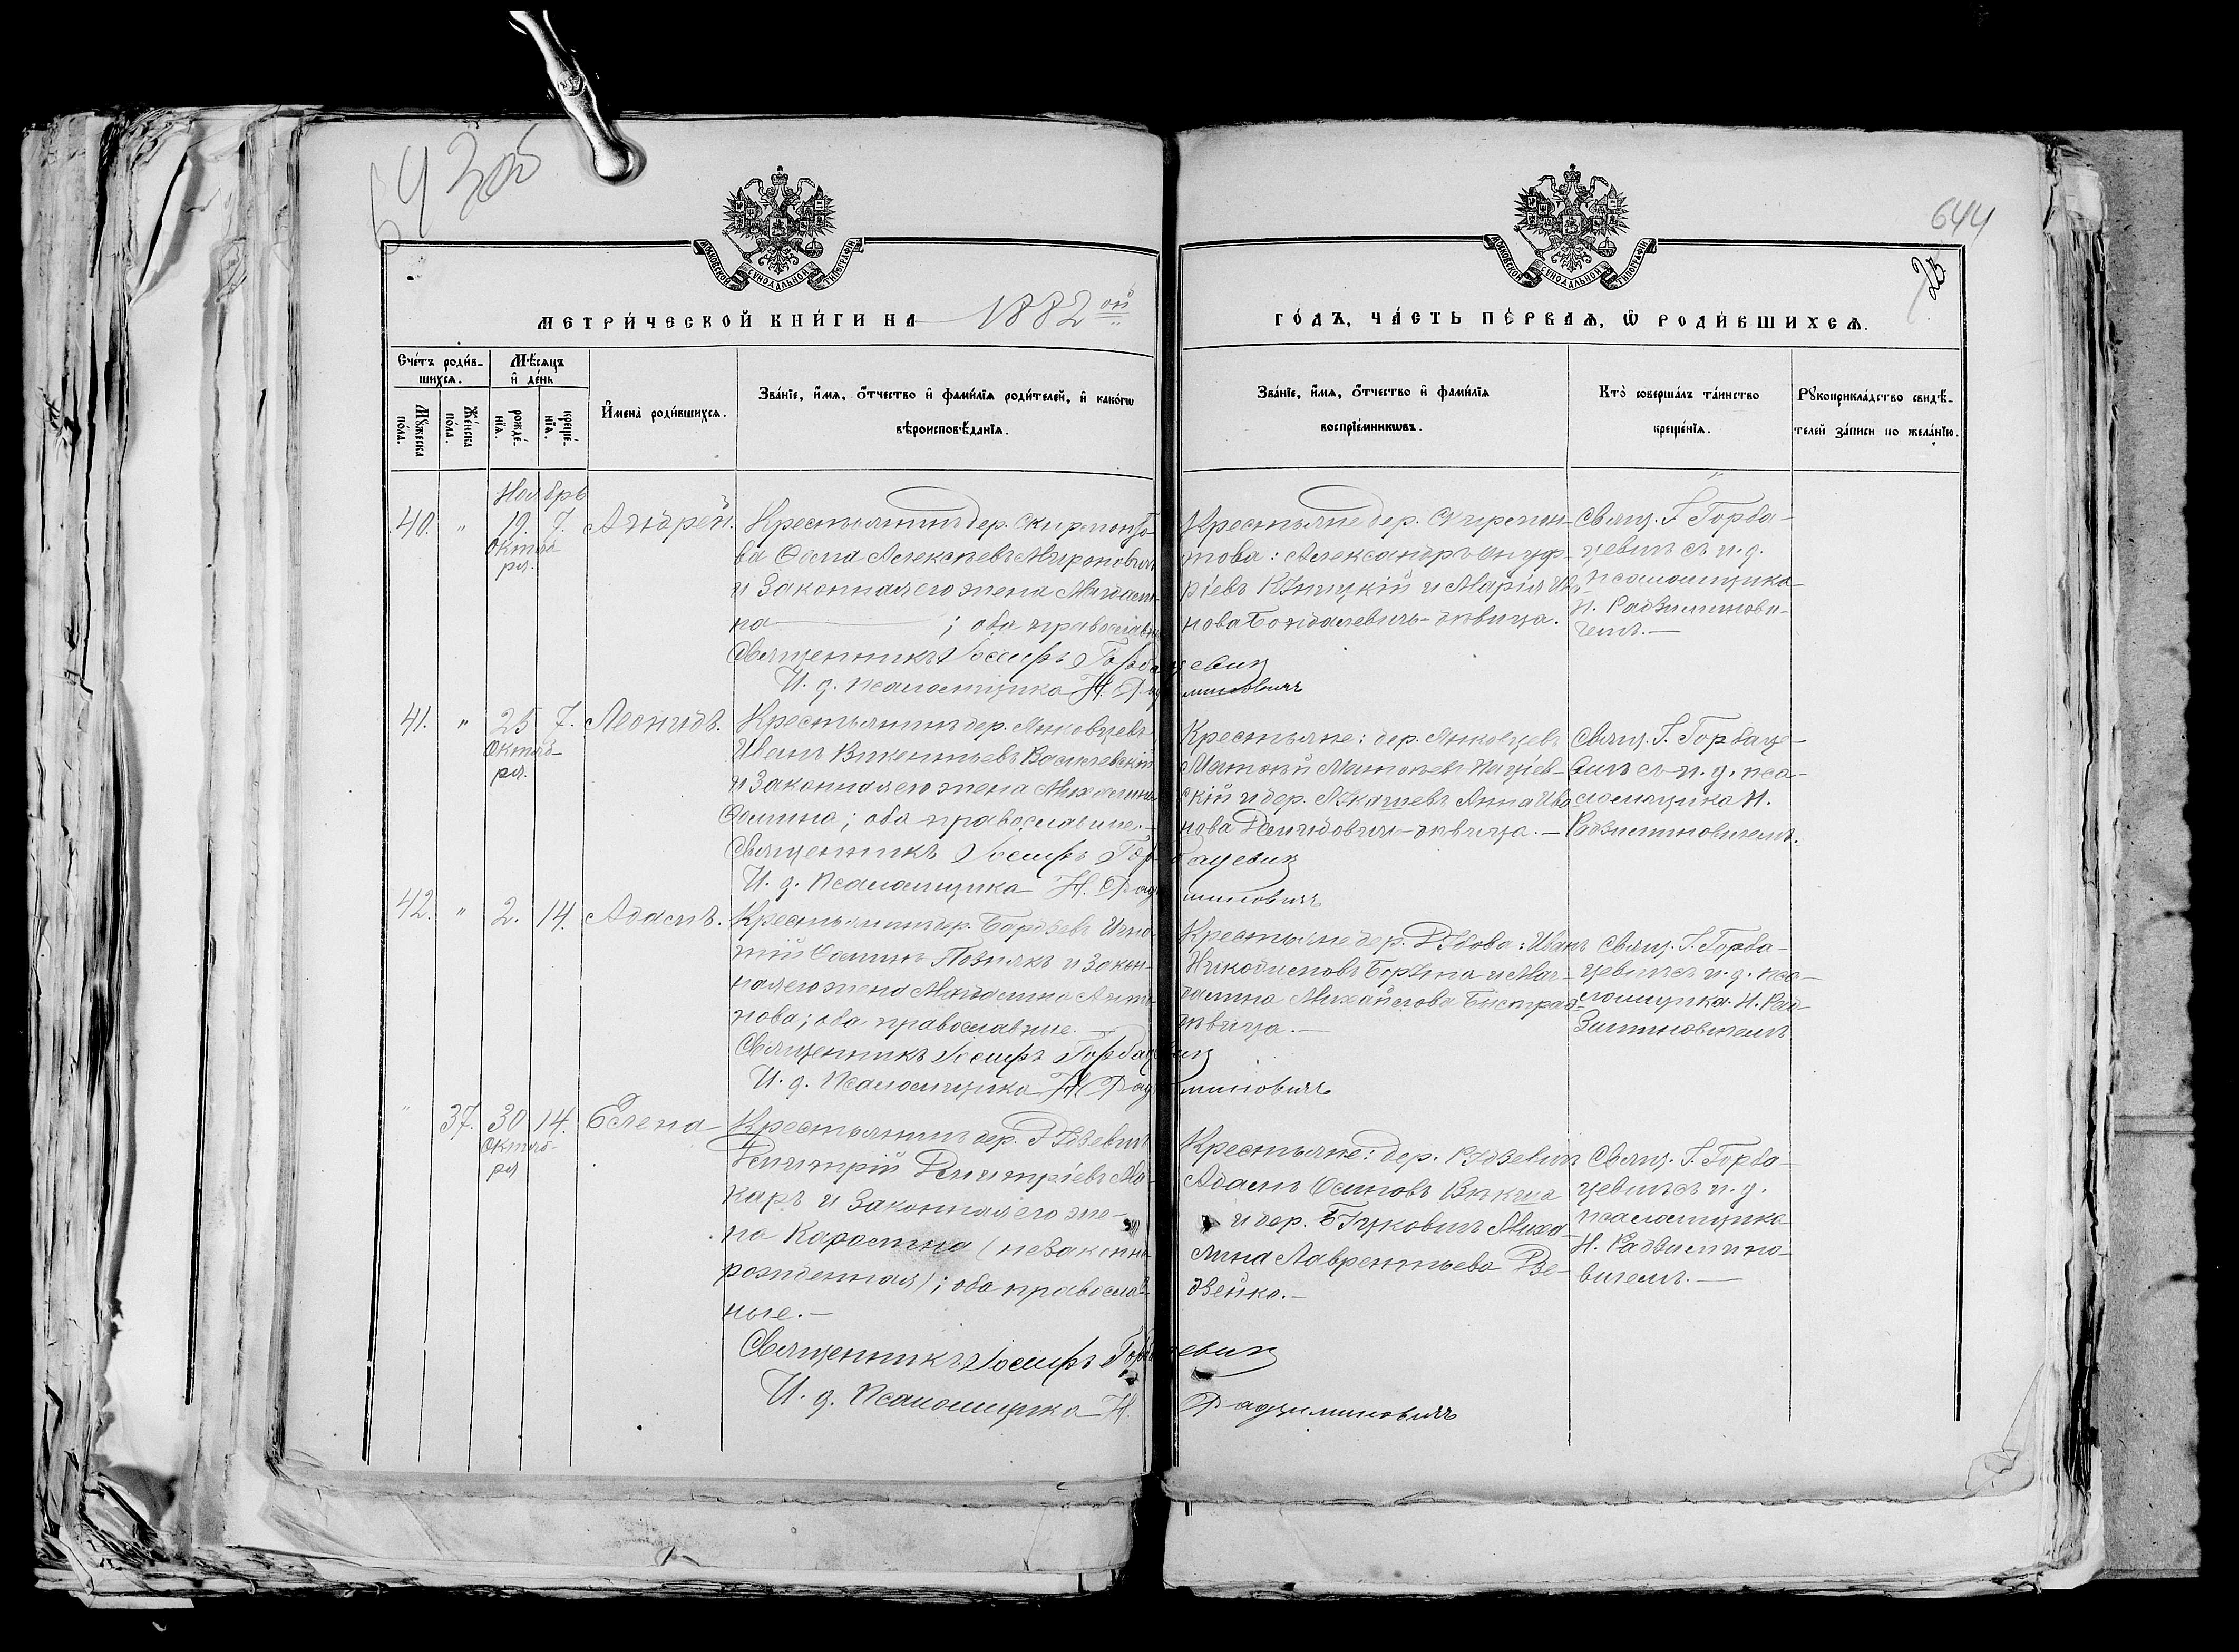 643об
644
МОСКОВСКОЙ СѴНОДАЛЬНОЙ ТИПОГРАФІИ
МОСКОВСКОЙ СѴНОДАЛЬНОЙ ТИПОГРАФІИ
МЕТРИ́ЧЕСКОЙ КНИ́ГИ НА 1882ой
ГО́ДЪ, ЧА́СТЬ ПЕ́РВАѦ, Ѿ РОДИ́ВШИХСѦ.
Сче́тъ роди́в-
шихсѧ.
Мꙋ́жеска
по́ла.
Же́нска
по́ла.
Мѣ́сѧцъ
и҆ де́нь
рожде́-
нїѧ.
креще́-
нїѧ.
И҆мена̀ роди́вшихсѧ.
Зва́нїе, и҆́мѧ, ѻ҆́тчество и҆ фами́лїѧ роди́телей, и҆ како́гѡ
вѣроисповѣ́данїѧ.
Зва́нїе, и҆́мѧ, ѻ҆́тчество и҆ фами́лїѧ
воспрїе́мникѡвъ.
Кто̀ соверша́лъ та́инство
креще́нїѧ.
Рꙋкоприкла́дство свидѣ́-
телей за́писи по жела́нїю.
Ноябрь
40. " 19. 7. Андрей.
Октяб-
ря.
Крестьянинъ дер. Скирмонто-
ва Ѳома Алексѣевъ Мироновичъ
и законная его жена Магдали-
на ; оба православн
Священникъ Іосифъ Горбацевич
И. д. псаломщика Н. Радзиминовичъ
Крестьяне дер. Скирмон-
това: Александръ Онуф-
ріевъ и Марія Ива-
нова Бондалевичъ-дѣвица.
Свящ. І. Горба-
цевичъ съ и. д.
псаломщика
Н. Радзиминови-
чемъ.—
41. " 25 7. Леонидъ.
Октяб-
ря.
Крестьянинъ дер. Янковцевъ
Иванъ Викентьевъ Василевскій
и законная его жена Михалина
Ѳомина; оба православные.—
Священникъ Іосифъ Горбацевич
И. д. псаломщика Н. Радзиминовичъ
Крестьяне: дер. Янковцевъ
Антоній Антоневъ
скій и дер. Анна Ива-
нова Демидовичъ-дѣвица.—
Свящ. І. Горбаце-
вичъ съ и. д. пса-
ломщика Н.
Радзиминовичемъ.
42. " 2. 14. Адамъ.
Крестьянинъ дер. Борзовъ Игна-
тій Ѳоминъ Познякъ и закон-
ная его жена Магдалина Анто-
нова; оба православные.—
Священникъ Іосифъ Горбацевич
И. д. псаломщика Н. Радзиминовичъ
Крестьяне дер. : Иванъ
Никодимовъ и Маг-
далина Михайлова
дѣвица.—
Свящ. І. Горба-
цевичъ съ и. д. пса-
ломщика Н. Рад-
зиминовичемъ.
" 37. 30 14. Елена
Октяб-
ря
Крестьянинъ дер.
Димитрій Димитріевъ Ма-
каръ и законная его же-
на (незаконно-
рожденная); оба православ-
ные.—
Священникъ Іосифъ Горбацевич
И. д. псаломщика Н. Радзиминовичъ
Крестьяне: дер.
Адамъ Осиповъ
и дер. Миха-
лина Лаврентьева Ве-
дзейко.—
Свящ. І. Горба-
цевичъ съ и. д.
псаломщика
Н. Радзимино-
вичемъ.—